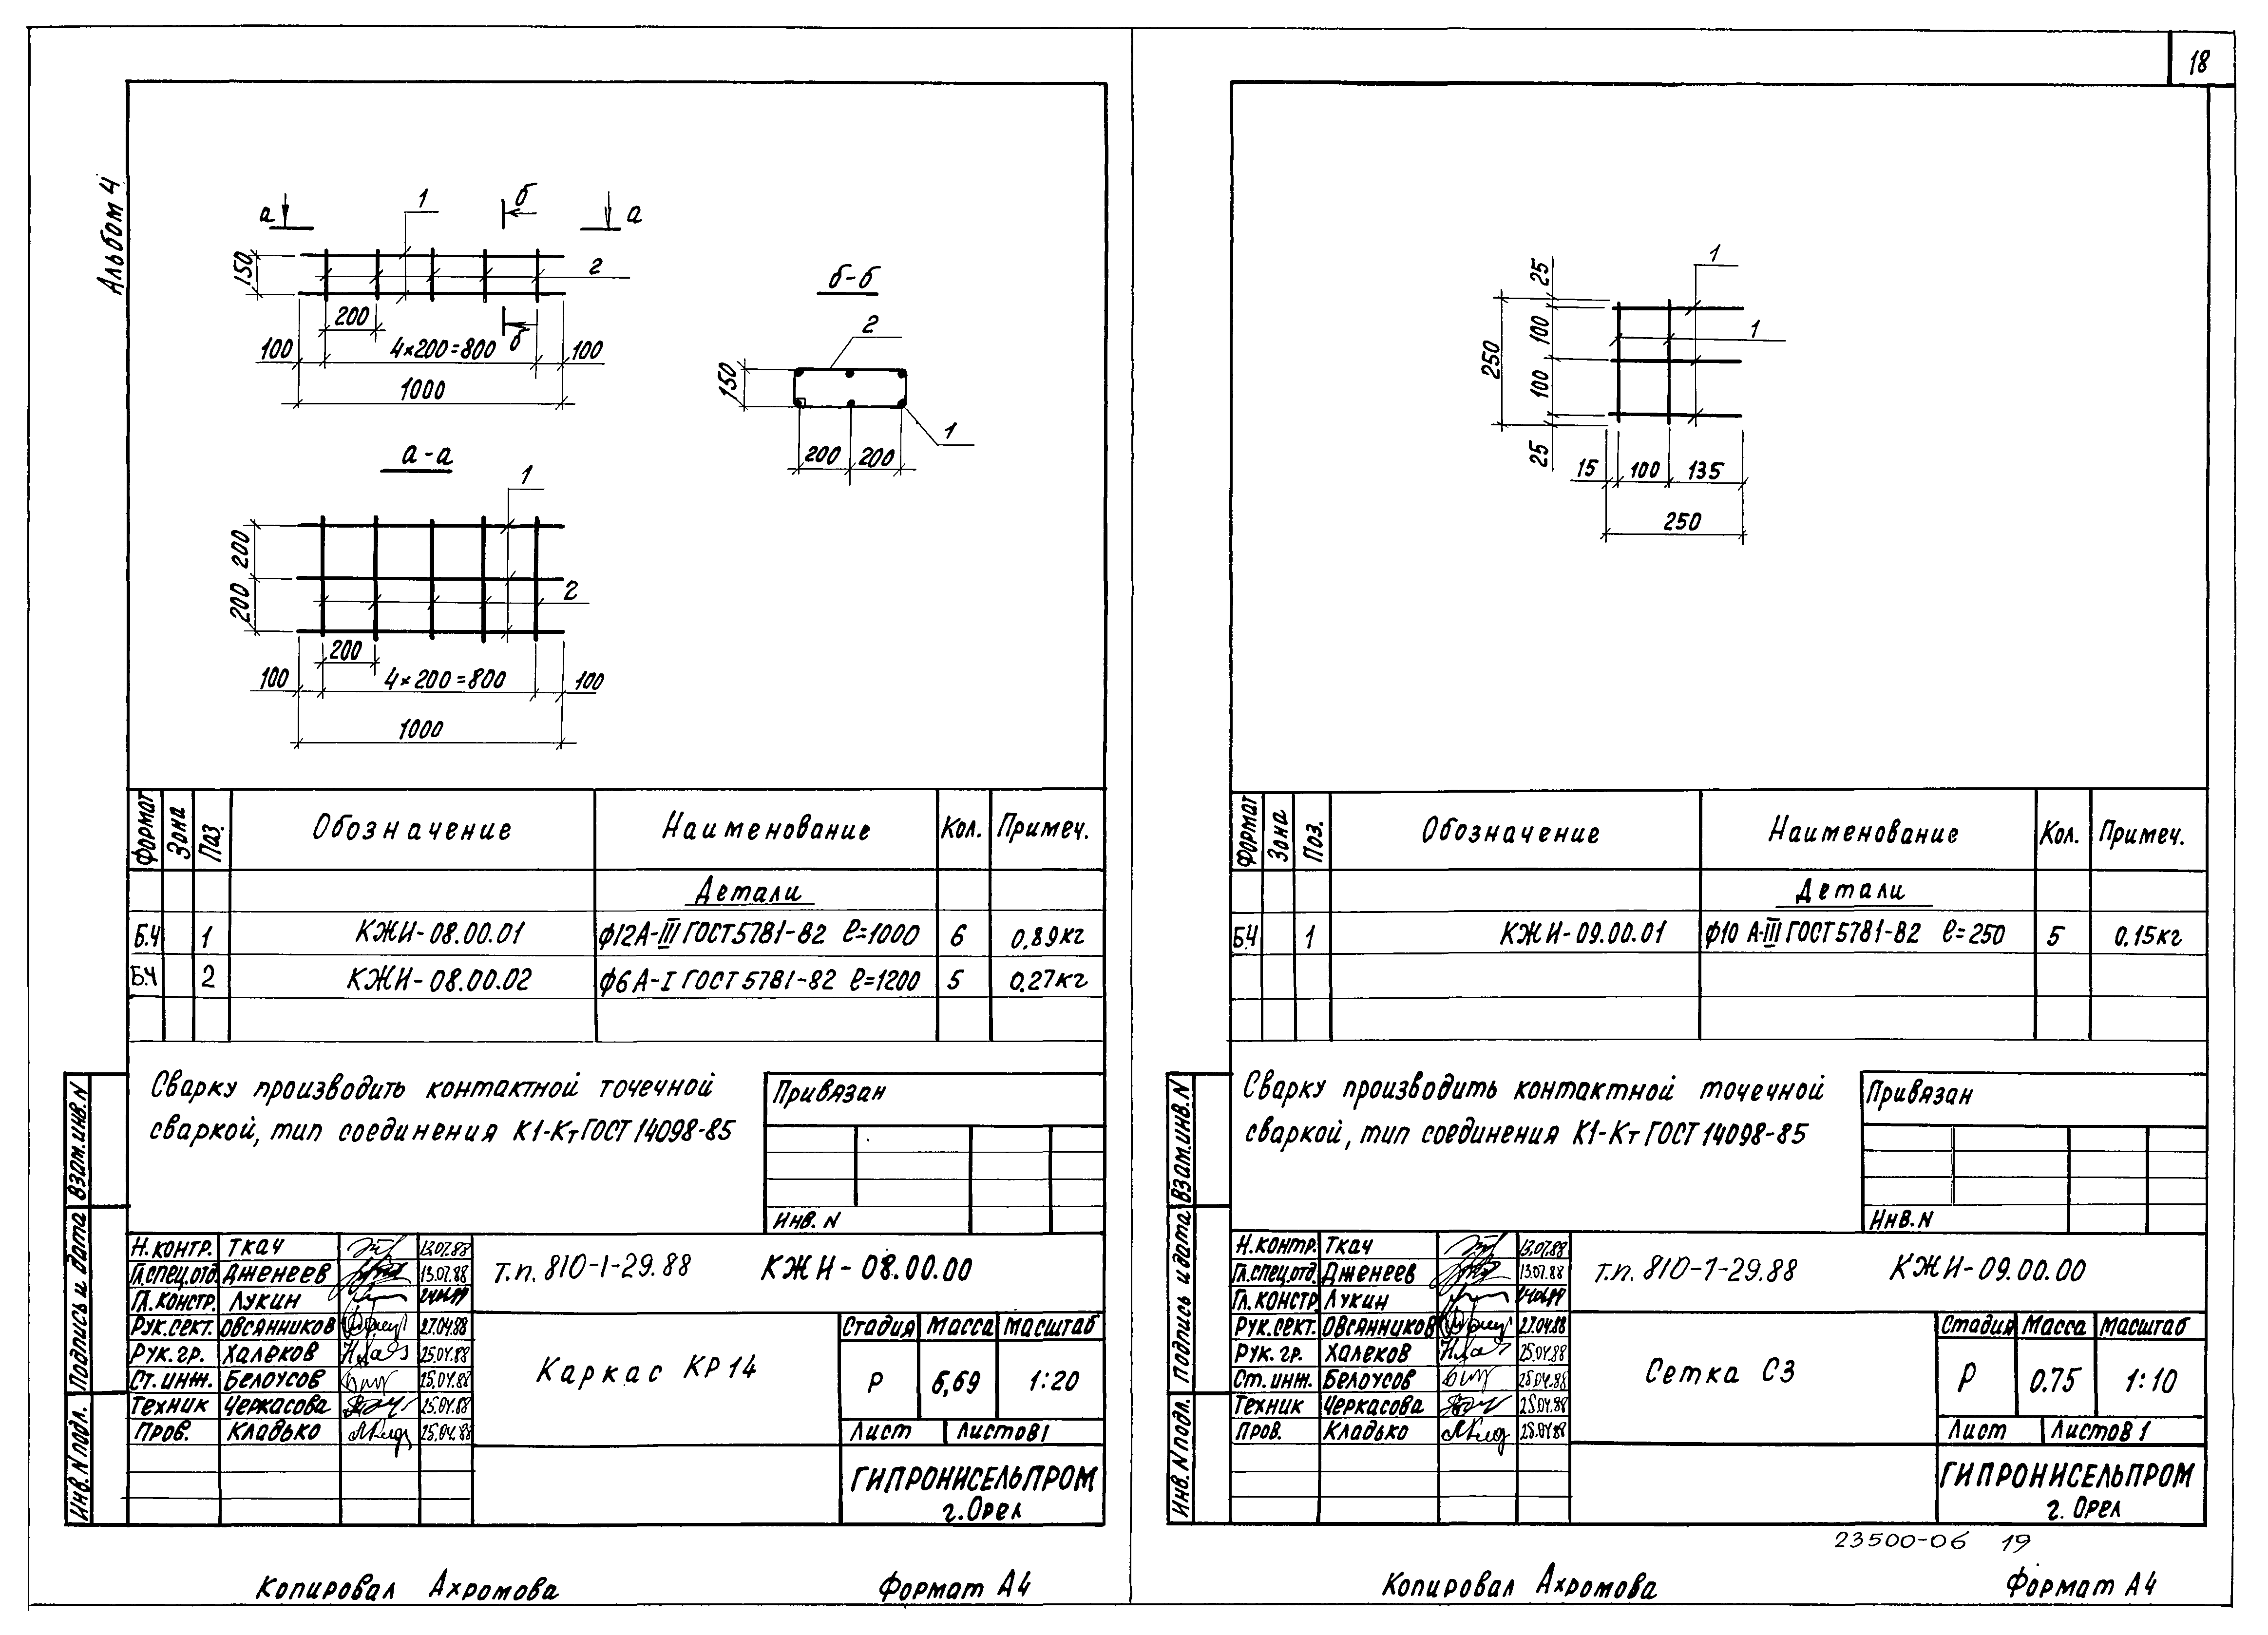 18
Альбом 4
а
1
б
а
150
2
200
б
100
4×200=800
100
1000
б-б
2
150
1
200
200
а-а
1
200
200
2
200
100
4×200=800
100
1000
Формат
Зона
Поз.
Обозначение
Наименование
Кол.
Примеч.
Детали
БЧ 1 КЖИ-08.00.01 ϕ12А-III ГОСТ 5781-82 ℓ=1000 6 0,89кг
БЧ 2 КЖИ-08.00.02 ϕ6 А-I ГОСТ 5781-82 ℓ=1200 5 0,27кг
Сварку производить контактной точечной
сваркой, тип соединения К1-Кт ГОСТ 14098-85
Привязан
Инв. N
Взам.инв. N
Подпись и дата
Инв. N подл.
Н.контр. Ткач 13.07.88
Гл.спец.отд. Дженеев 13.07.88
Гл. констр. Лукин
Рук.сект. Овсянников 27.04.88
Рук. гр. Халеков 25.04.88
Ст. инж. Белоусов 25.04.88
Техник Черкасова 25.04.88
Пров. Кладько 25.04.88
т.п. 810-1-29.88 КЖИ-08.00.00
Каркас КР14
Стадия Масса Масштаб
Р 6,69 1:20
Лист Листов 1
ГИПРОНИСЕЛЬПРОМ
г. Орел
Копировал Ахромова
Формат А4
25
100
250
100
25
1
1
15
100
135
250
Формат
Зона
Поз.
Обозначение
Наименование
Кол.
Примеч.
Детали
БЧ 1 КЖИ-09.00.01 ϕ10 А-III ГОСТ 5781-82 ℓ=250 5 0.15кг
Сварку производить контактной точечной
сваркой, тип соединения К1-Кт ГОСТ 14098-85
Привязан
Инв. N
Взам.инв. N
Подпись и дата
Инв. N подл.
Н.контр. Ткач 13.07.88
Гл.спец.отд. Дженеев 13.07.88
Гл. констр. Лукин
Рук.сект. Овсянников 27.04.88
Рук. гр. Халеков 25.04.88
Ст. инж. Белоусов 25.04.88
Техник Черкасова 25.04.88
Пров. Кладько 25.04.88
т.п. 810-1-29.88 КЖИ-09.00.00
Сетка С3
Стадия Масса Масштаб
Р 0.75 1:10
Лист Листов 1
ГИПРОНИСЕЛЬПРОМ
г. Орел
23500-06 19
Копировал Ахромова
Формат А4